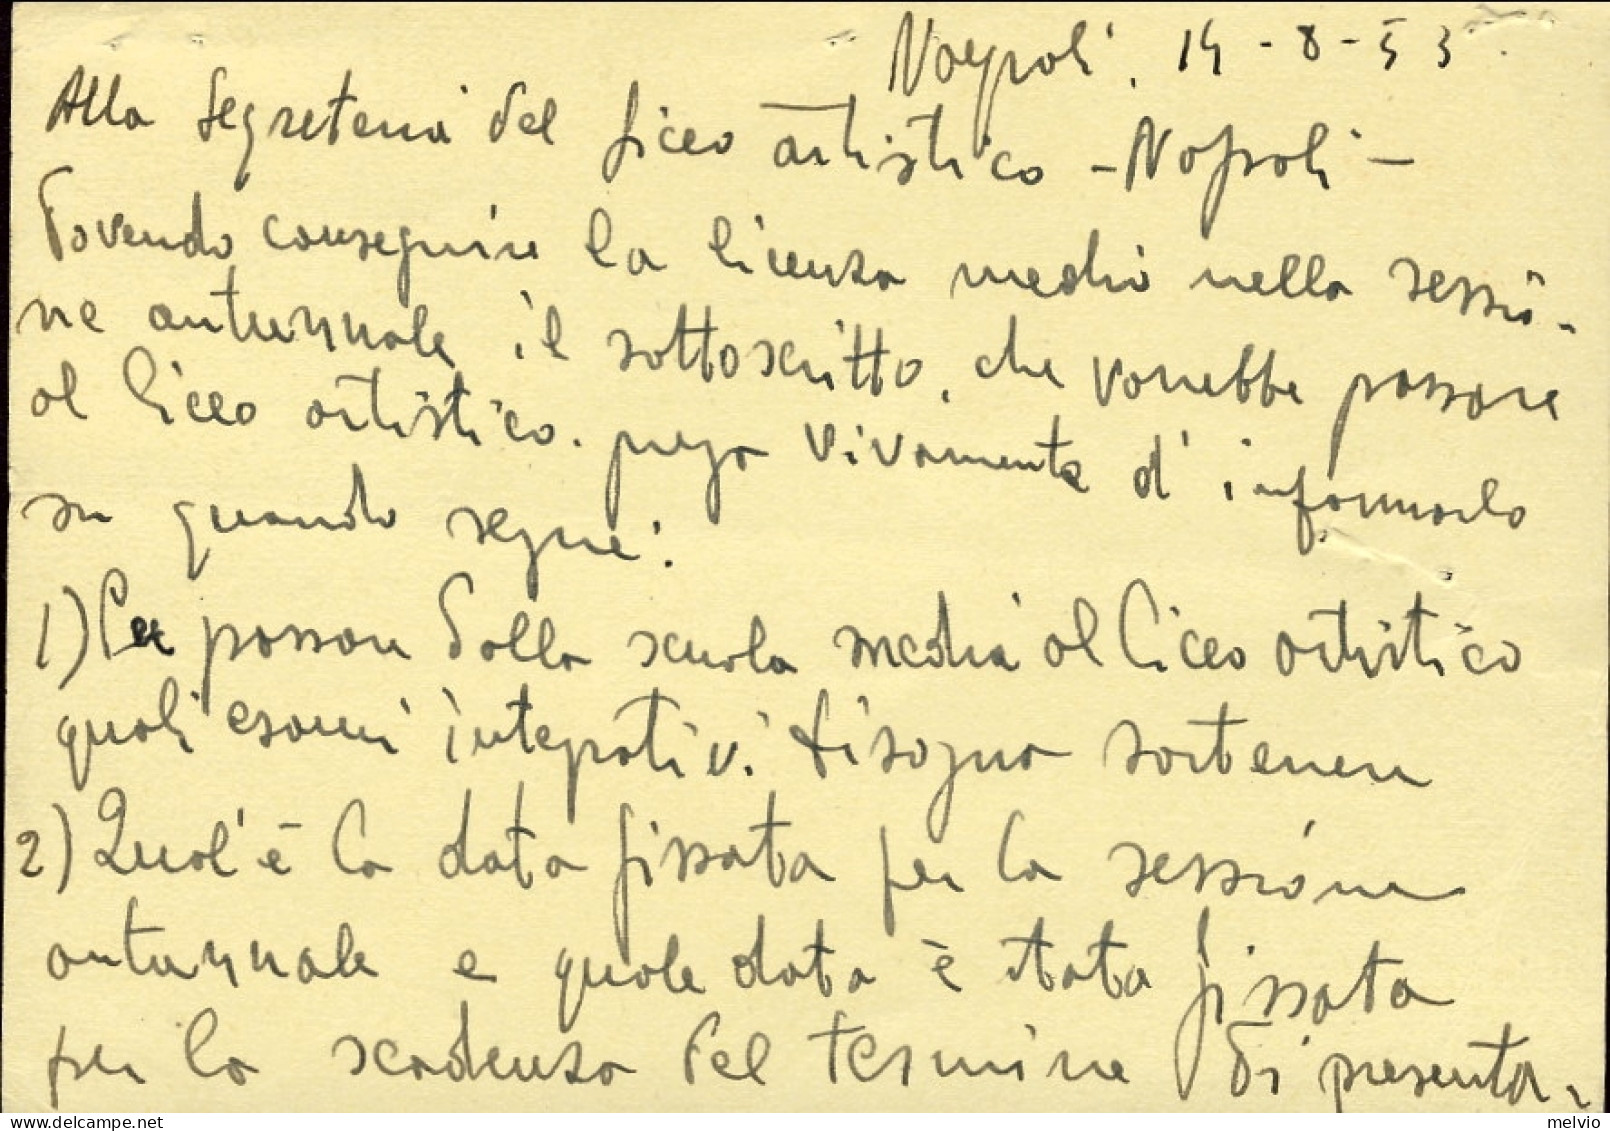 Napoli, 14-8-53
Alla Segreteria del Liceo artistico - Napoli -
Dovendo conseguire la licenza media nella sessio-
ne autunnale il sottoscritto, che vorrebbe passare
al liceo artistico, prega vivamente d'informarlo
su quanto segue:
1) Per passare dalla scuola media al liceo artistico
quali esami integrativi bisogna sostenere
2) Qual'è la data fissata per la sessione
autunnale e quale data è stata fissata
per la scadenza del termine di presenta-
delcampe.net
melvio